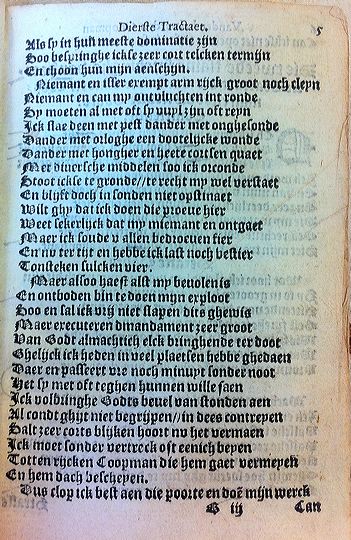 Dierste Tractaet. 5
Als sy in hun meeste dominatie zijn
Soo bespringhe ickse zeer cort telcken termijn
En thoon hun mijn aenschijn.
Niemant en isser exempt arm rijck groot noch cleyn
Niemant en can my ontvluchten int ronde
Sy moeten al met oft sy vuyl zijn oft reyn
Ick slae deen met pest dander met onghesonde
Dander met orloghe een dootelijcke wonde
Dander met hongher en heete cortsen quaet
Met diversche middelen soo ick orconde
Stoot ickse te gronde//te recht my wel verstaet
En blijft doch in sonden niet opstinaet
Wilt ghy dat ick doen die proeve hier
Weet sekerlijck dat my niemant en ontgaet
Maer ick soude v allen bedroeven fier
En nv ter tijt en hebbe ick last noch bestier
Tonsteken sulcken vier.
Maer alsoo haest alst my bevolen is
En ontboden bin te doen mijn exploot
Soo en sal ick vrij niet slapen dits ghewis
Maer executeren dmandament zeer groot
Van Godt almachtich elck bringhende ter doot
Ghelijck ick heden in veel plaetsen hebbe ghedaen
Daer en passeert vre noch minuyt sonder noot
Het sy met oft teghen hunnen wille saen
Ick volbringhe Godts bevel van stonden aen
Al condt ghijt niet begrijpen//in dees contreyen
Salt zeer corts blijken hoort nv het vermaen
Ick moet sonder vertreck oft eenich beyen
Totten rijcken Coopman die hem gaet vermeyen
En hem dach bescheyen.
Dus clop ick best aen die poorte en doē mijn werck
B iij Can